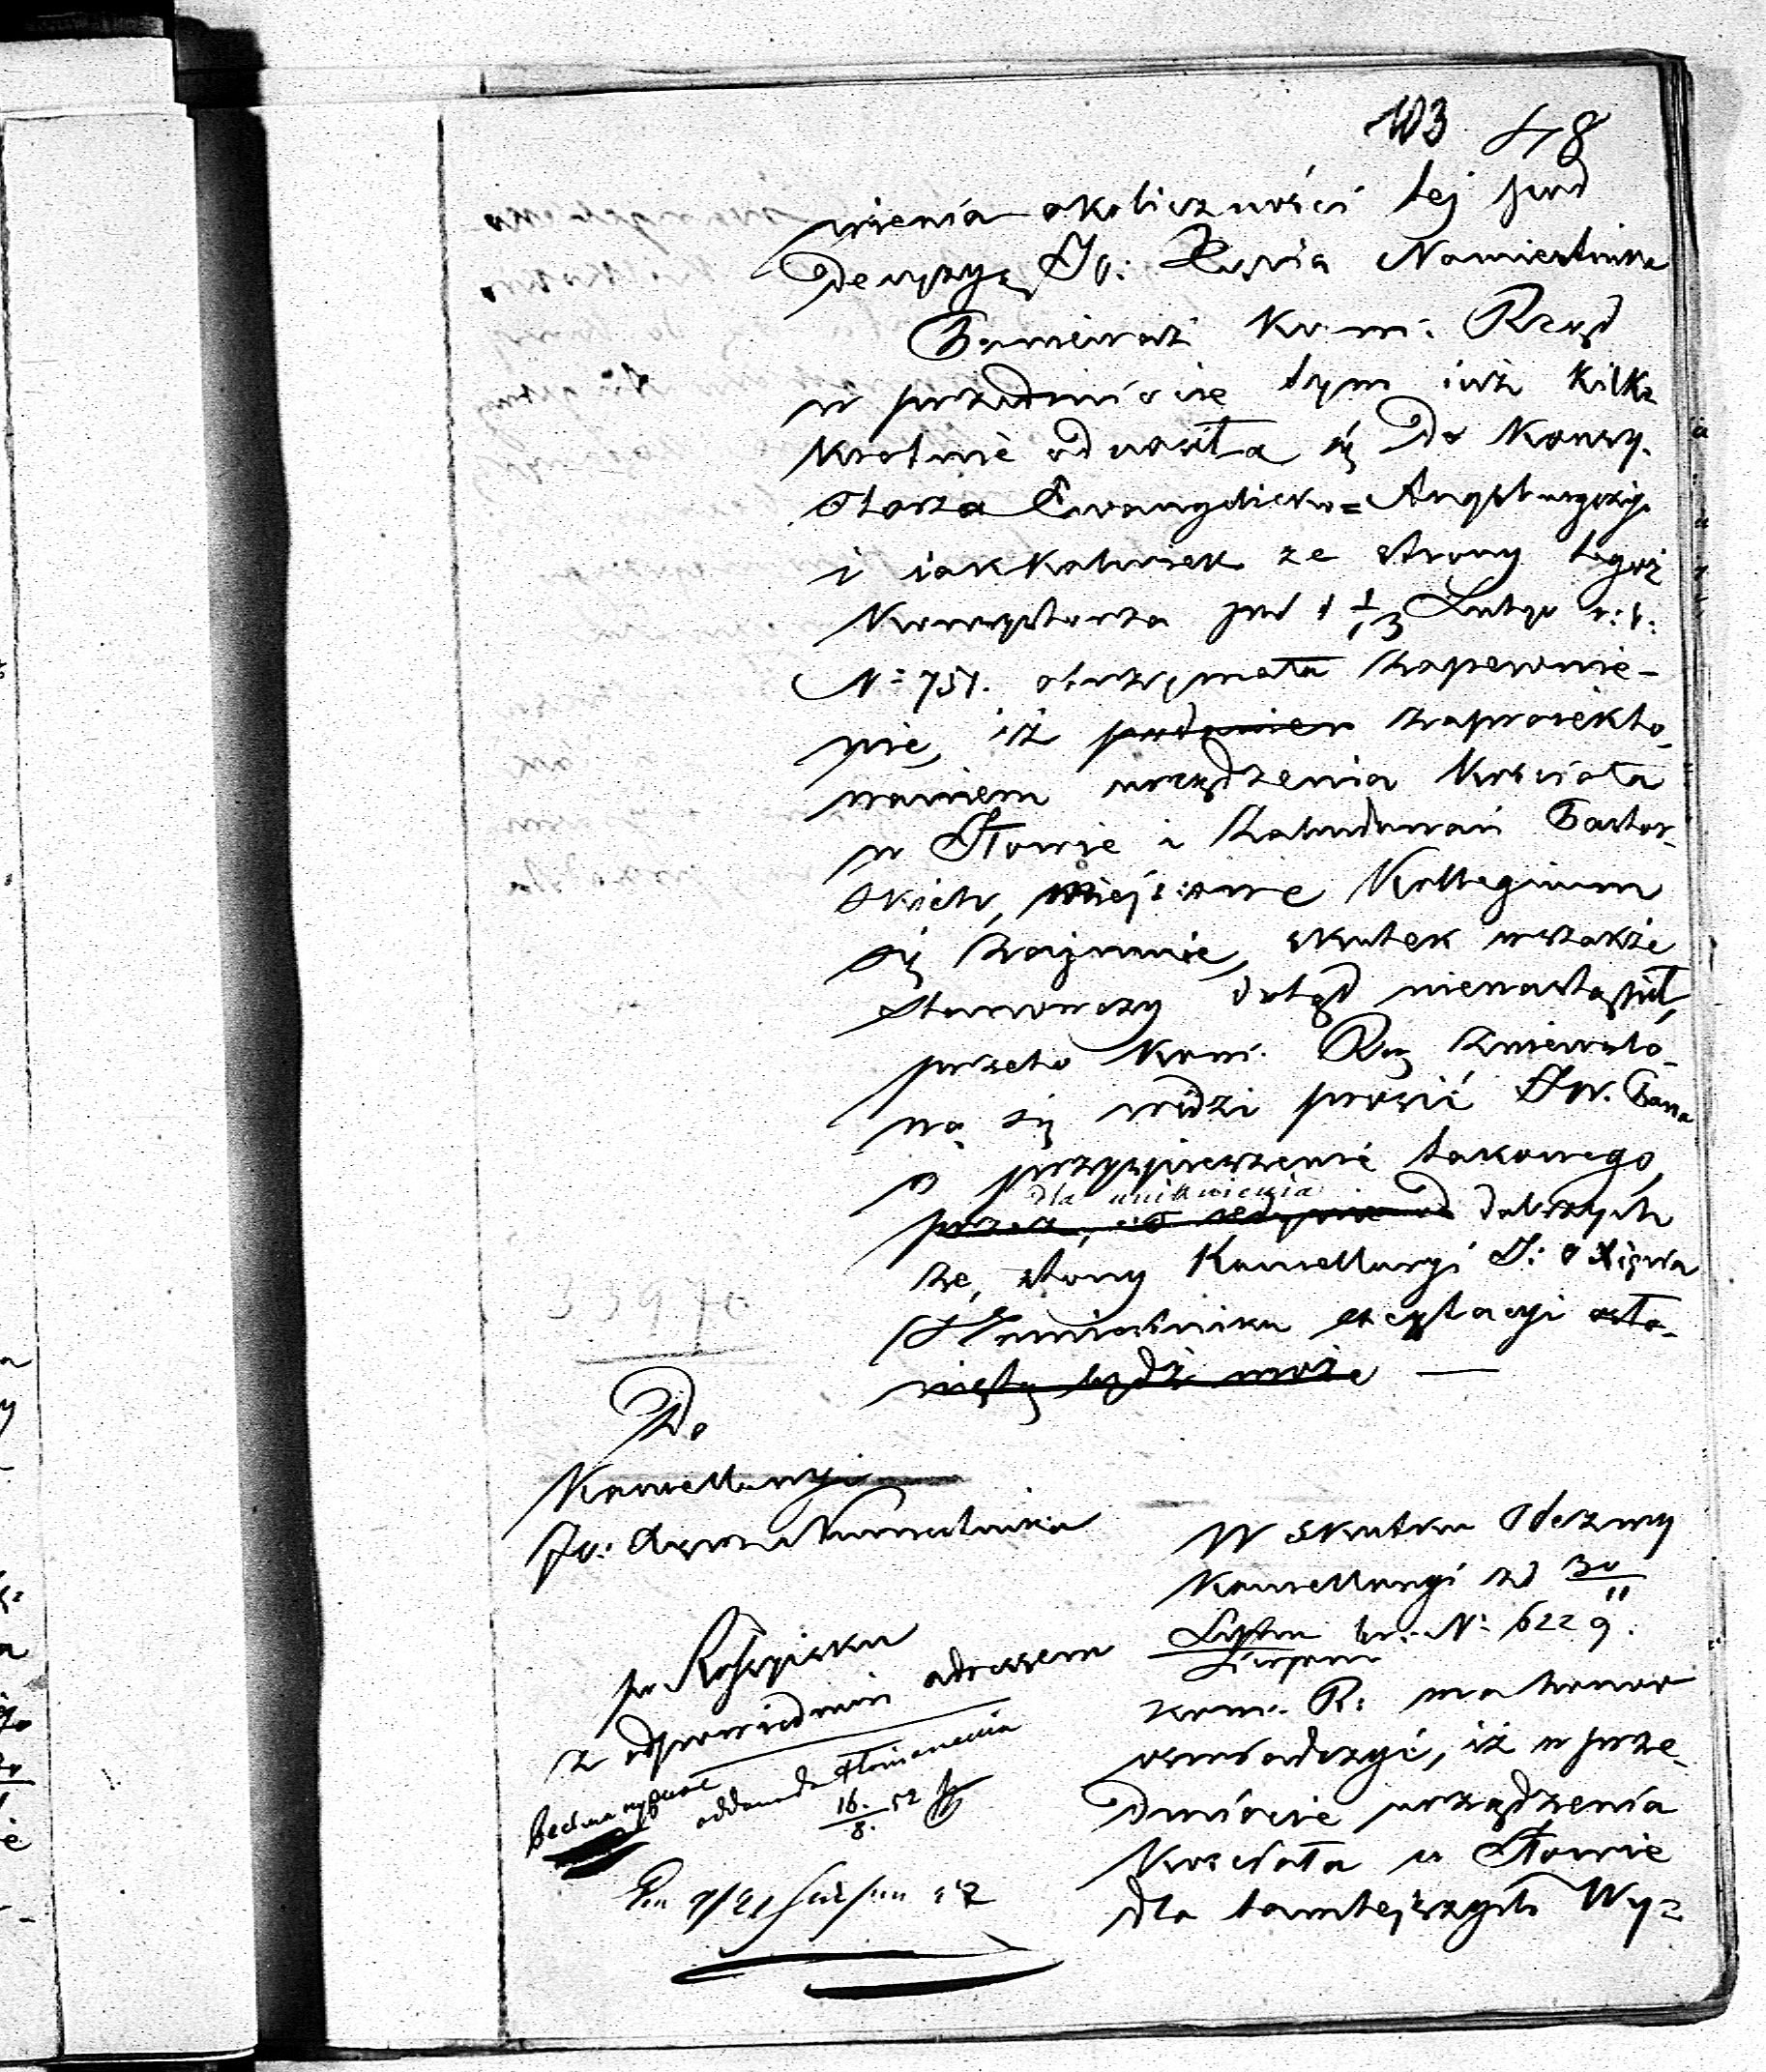 103 48
nienia okoliczności tej pod
decyzyą JO: Xięcia Namiestnika
Ponieważ Kom: Rząd
w przedmiocie tym już kilka
krotnie odnosiła się do Konsy-
storza Ewangelicko=Augsburgskiego
i jakkolwiek ze strony tegoż
Konsystorza pod d 1/13 Lutego r: b:
N: 751. otrzymała zapewnie-
nie, iż zaprojekto-
waniem urządzenia Kościoła
w Iłowie i Zabudowań Pastor-
skich, miejscowe Kollegium
się zajmuie, skutek wszakże
stanowczy dotąd nienastąpił,
przeto Kom: Rz zniewolo-
ną się widzi prosić JW. Pana
o przyspieszenie takowego,
dla uniknienia
przez co jedynie od dalszych
ze strony Kancellaryi J: O Xięcia
Namiestnika excytacyi osło-
niętą bydź może —
3397/0
Do
Kancellaryi
JO: Xięcia Namiestnika
W skutku Odezwy
Kancellaryi z d 30/11
Lipca/Sierpnia br: N: 6229.
Kom. R: ma honor
oświadczyć, iż w prze-
dmiocie urządzenia
Kościoła w Iłowie
dla tamtejszych Wy-
po Rossyisku
z odpowiednim adressem
oddano do tłómaczenia
16/8. 52
9/21 Sierpnia 52